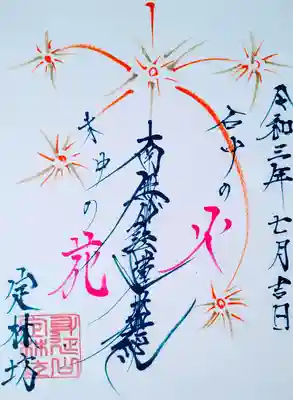 令和三年七月吉日
石中の火
南無妙法蓮華経
木中の花
定林坊